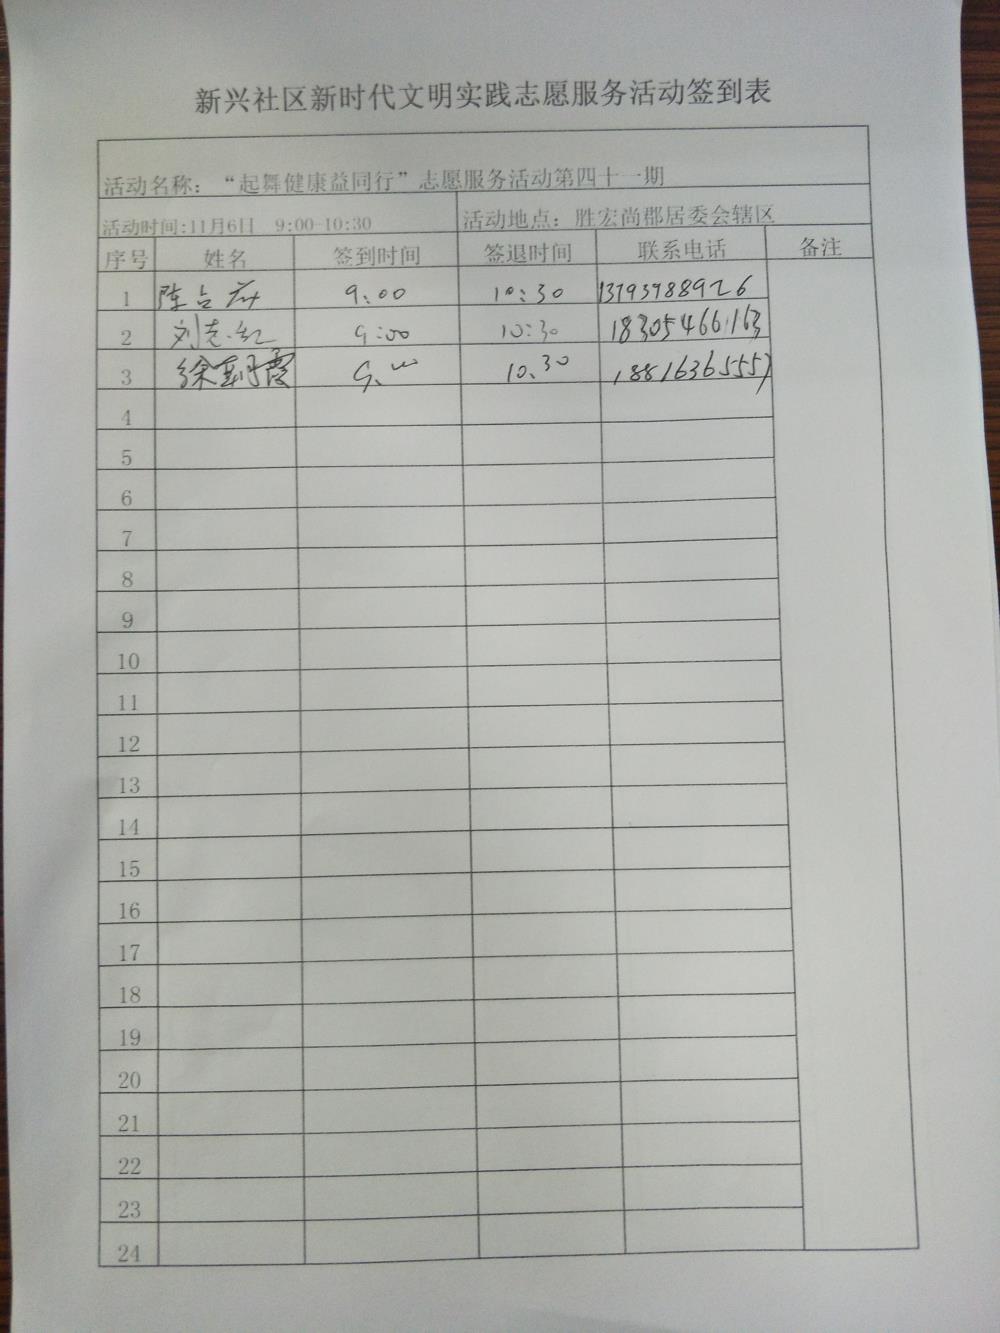 新兴社区新时代文明实践志愿服务活动签到表
活动名称：“起舞健康益同行”志愿服务活动第四十一期
活动时间:11月6日 9:00-10:30 活动地点：胜宏尚郡居委会辖区
序号 姓名 签到时间 签退时间 联系电话 备注
1 陈 9:00 10:30 13793988926
2 刘 红 9:00 10:30 18305466163
3 徐 霞 9.00 10.30 18816365557
4
5
6
7
8
9
10
11
12
13
14
15
16
17
18
19
20
21
22
23
24